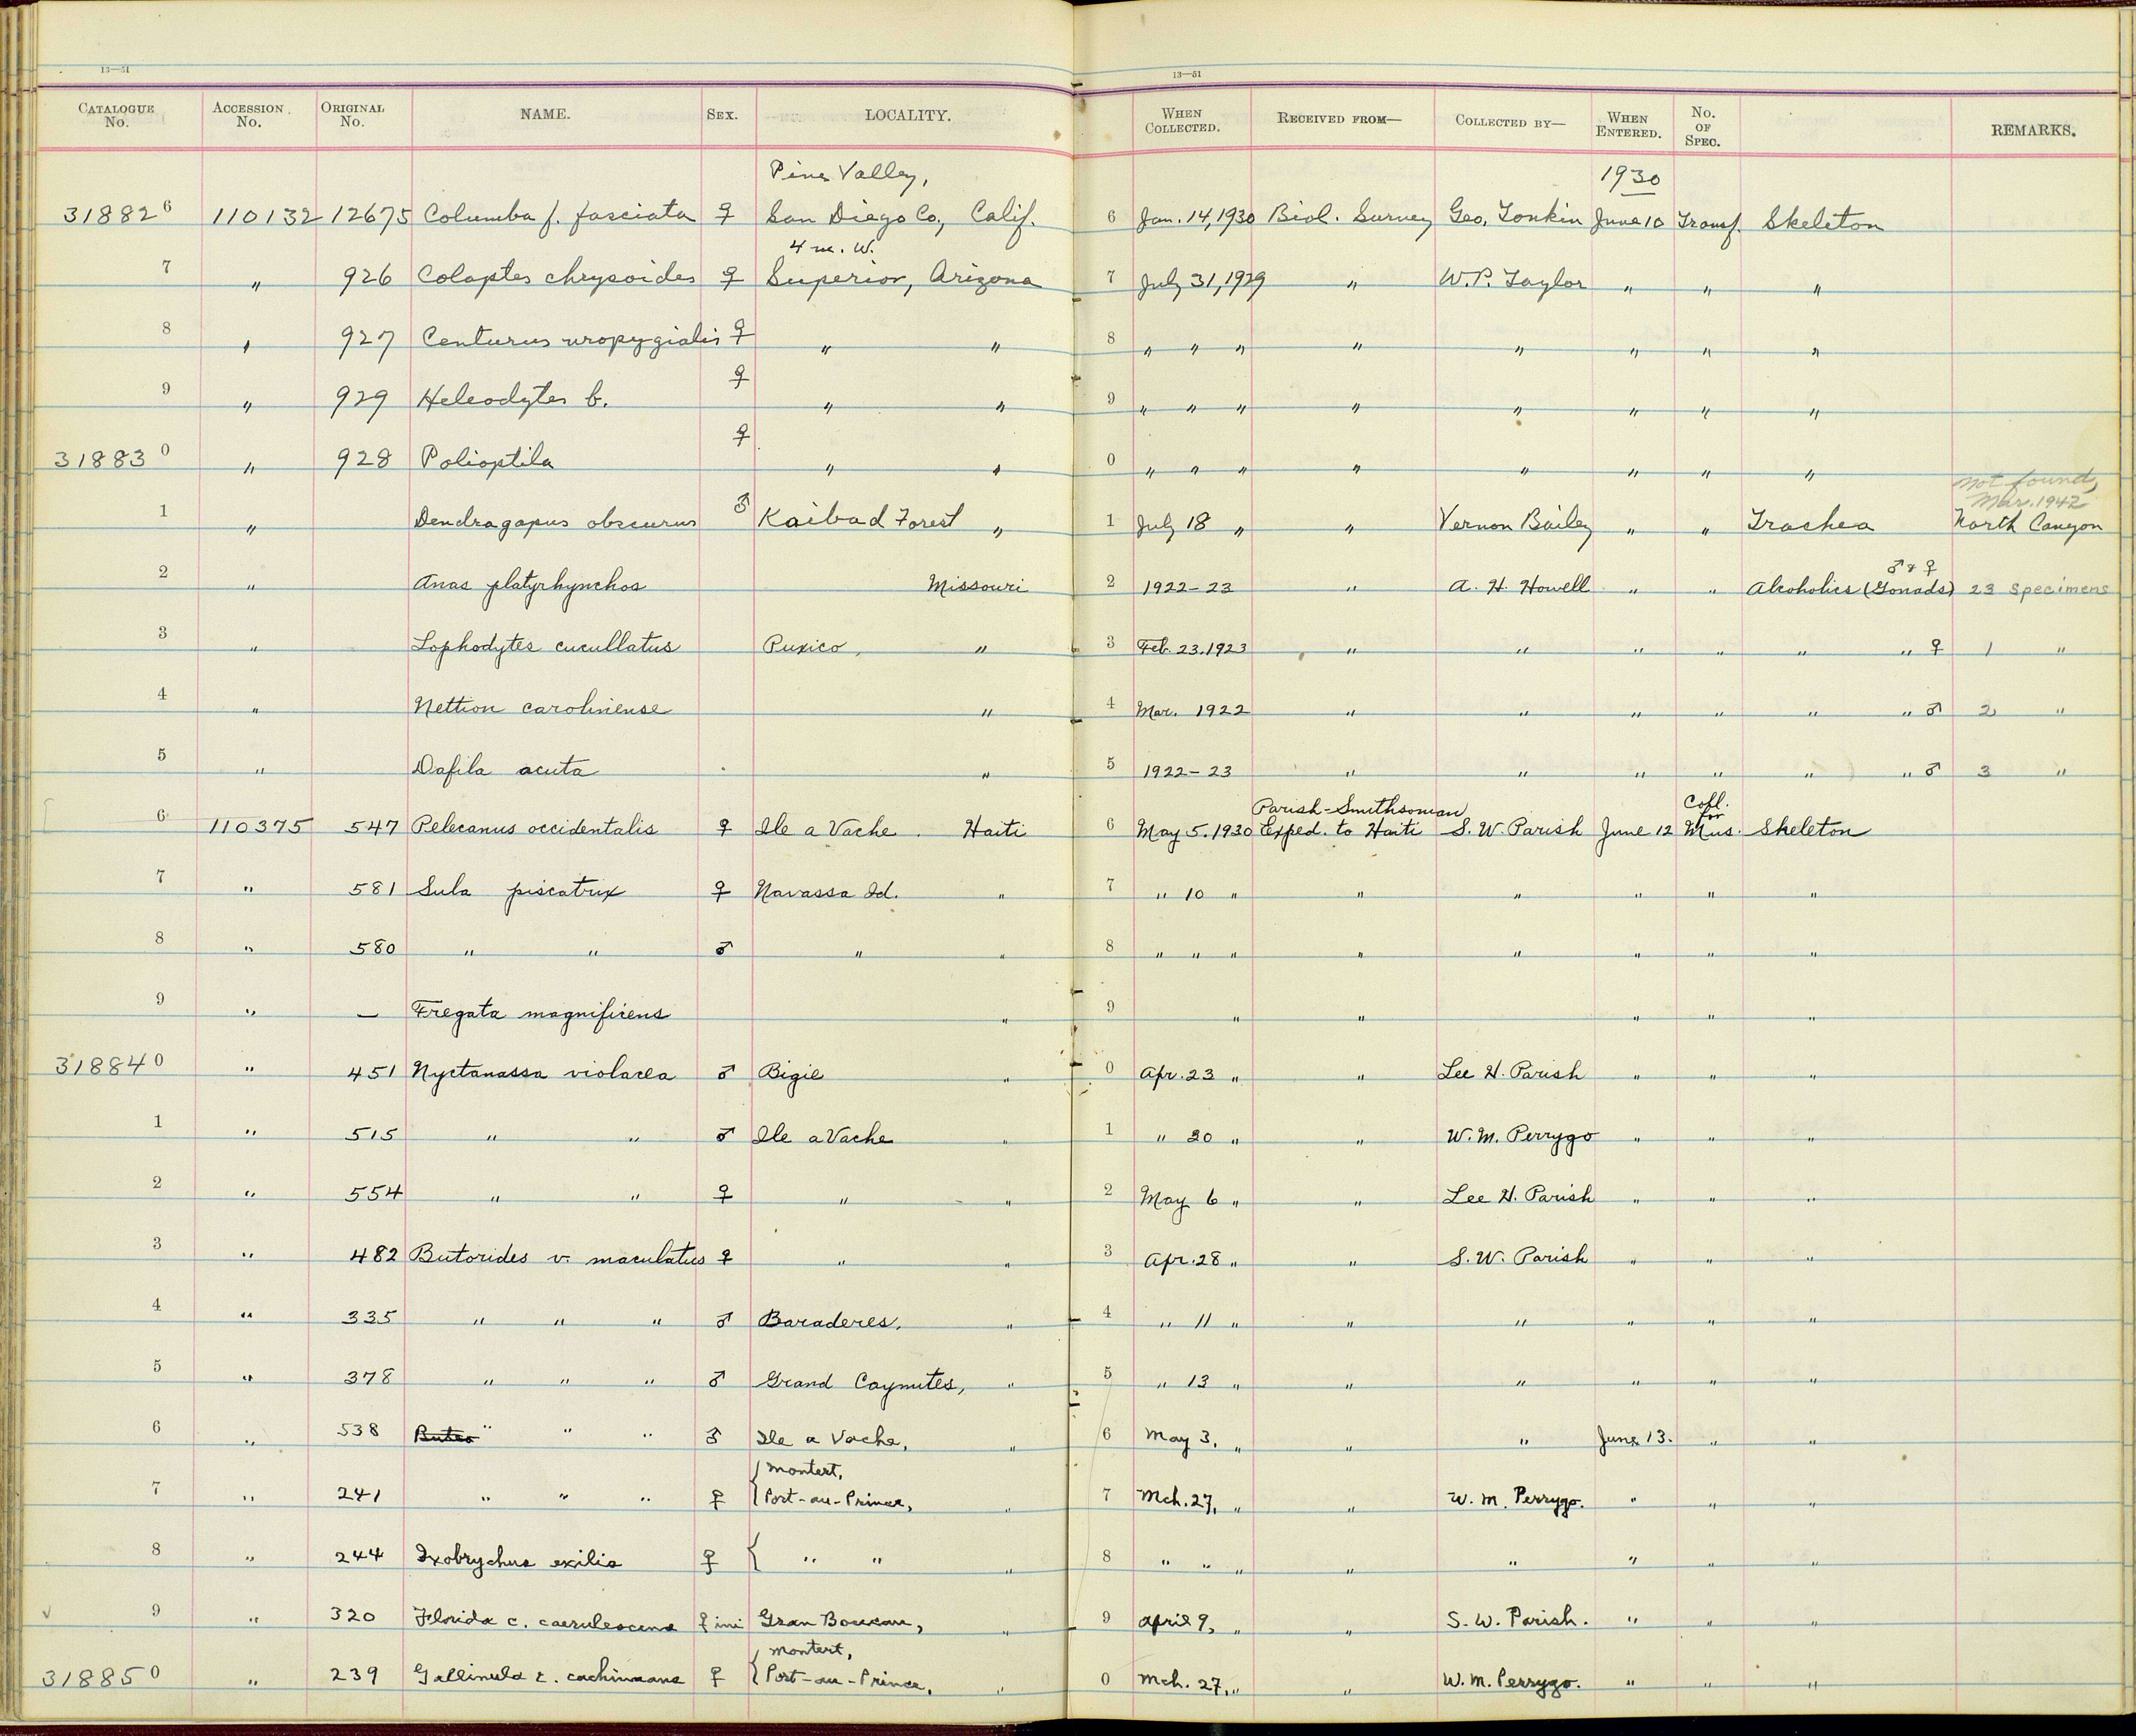 13—51
13—51
CATALOGUE No. ACCESSION No. ORIGINAL No. NAME. SEX. LOCALITY. WHEN COLLECTED. RECEIVED FROM— COLLECTED BY— WHEN ENTERED. No. OF SPEC. REMARKS.
Pine Valley, 1930
318826 110132 12675 Columba f. fasciata ♀ San Diego Co, Calif. 6 Jan. 14, 1930 Biol. Survey Geo. Tonkin June 10 Transf. Skeleton
4 m. W.
7 " 926 Colaptes chrysoides ♀ Superior, Arizona 7 July 31, 1929 " W.P. Taylor " " "
8 " 927 Centurus uropygialis ♀ " " 8 " " " " " " " "
9 " 929 Heleodytes b. ♀ " " 9 " " " " " " " "
318830 " 928 Polioptila ♀ " " 0 " " " " " " " "
not found,
Mar. 1942
1 " Dendragapus obscurus ♂ Kaibad Forest " 1 July 18 " " Vernon Bailey " " Trachea North Canyon
♂ & ♀
2 " Anas platyrhynchos Missouri 2 1922-23 " A. H. Howell " " Alcoholics (Gonads) 23 Specimens
3 " Lophodytes cucullatus Puxico, " 3 Feb. 23. 1923 " " " " " " ♀ 1 "
4 " Nettion carolinense " 4 Mar. 1922 " " " " " " ♂ 2 "
5 " Dafila acuta " 5 1922-23 " " " " " " ♂ 3 "
Parish-Smithsonian Coll. for
6 110375 547 Pelecanus occidentalis ♀ Ile a Vache. Haiti 6 May 5. 1930 Exped. to Haiti S. W. Parish June 12 Mus. Skeleton
7 " 581 Sula piscatrix ♀ Navassa Id. " 7 " 10 " " " " " "
8 " 580 " " ♂ " " 8 " " " " " " " "
9 " — Fregata magnificens " 9 " " " " "
318840 " 451 Nyctanassa violacea ♂ Bigie " 0 Apr. 23 " " Lee H. Parish " " "
1 " 515 " " ♂ Ile a Vache " 1 " 20 " " W. M. Perrygo " " "
2 " 554 " " ♀ " " 2 May 6 " " Lee H. Parish " " "
3 " 482 Butorides v. maculatus ♀ " " 3 Apr. 28 " " S. W. Parish " " "
4 " 335 " " " ♂ Baraderes, " 4 " 11 " " " " " "
5 " 378 " " " ♂ Grand Caymites, " 5 " 13 " " " " " "
6 " 538 Buteo " " " ♂ Ile a Vache, " 6 May 3, " " " June 13. " "
montert,
7 " 241 " " " ♀ Port-au-Prince, " 7 Mch. 27, " " W. M. Perrygo. " " "
8 " 244 Ixobrychus exilis ♀ " " " 8 " " " " " " " "
9 " 320 Florida c. caerulescens ♀ im Gran Boucan, " 9 April 9, " " S. W. Parish. " " "
montert,
318850 " 239 Gallinula c. cachinnans ♀ Port-au-Prince, " 0 Mch. 27, " " W. M. Perrygo. " " "